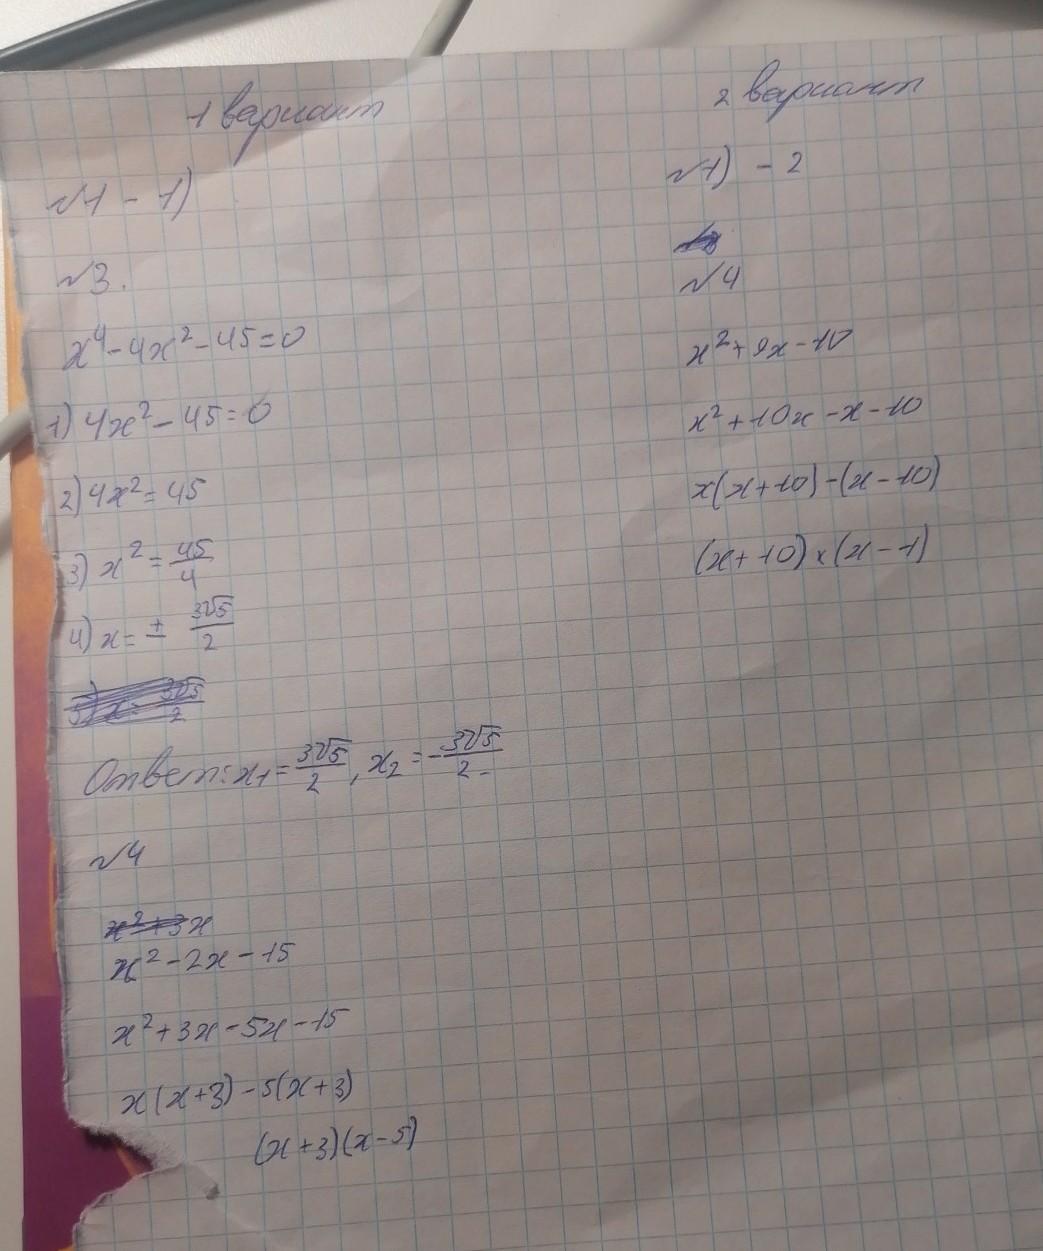 1 вариант
№1 - 1)
№3.
x⁴-4x²-45=0
1) 4x²-45=0
2) 4x²=45
3) x²=45/4
4) x=± 3√5/2
Ответ: x₁=3√5/2, x₂=-3√5/2
№4
x²-2x-15
x²+3x-5x-15
x(x+3)-5(x+3)
(x+3)(x-5)
2 вариант
№1) - 2
№4
x²+9x-10
x²+10x-x-10
x(x+10)-(x-10)
(x+10)×(x-1)